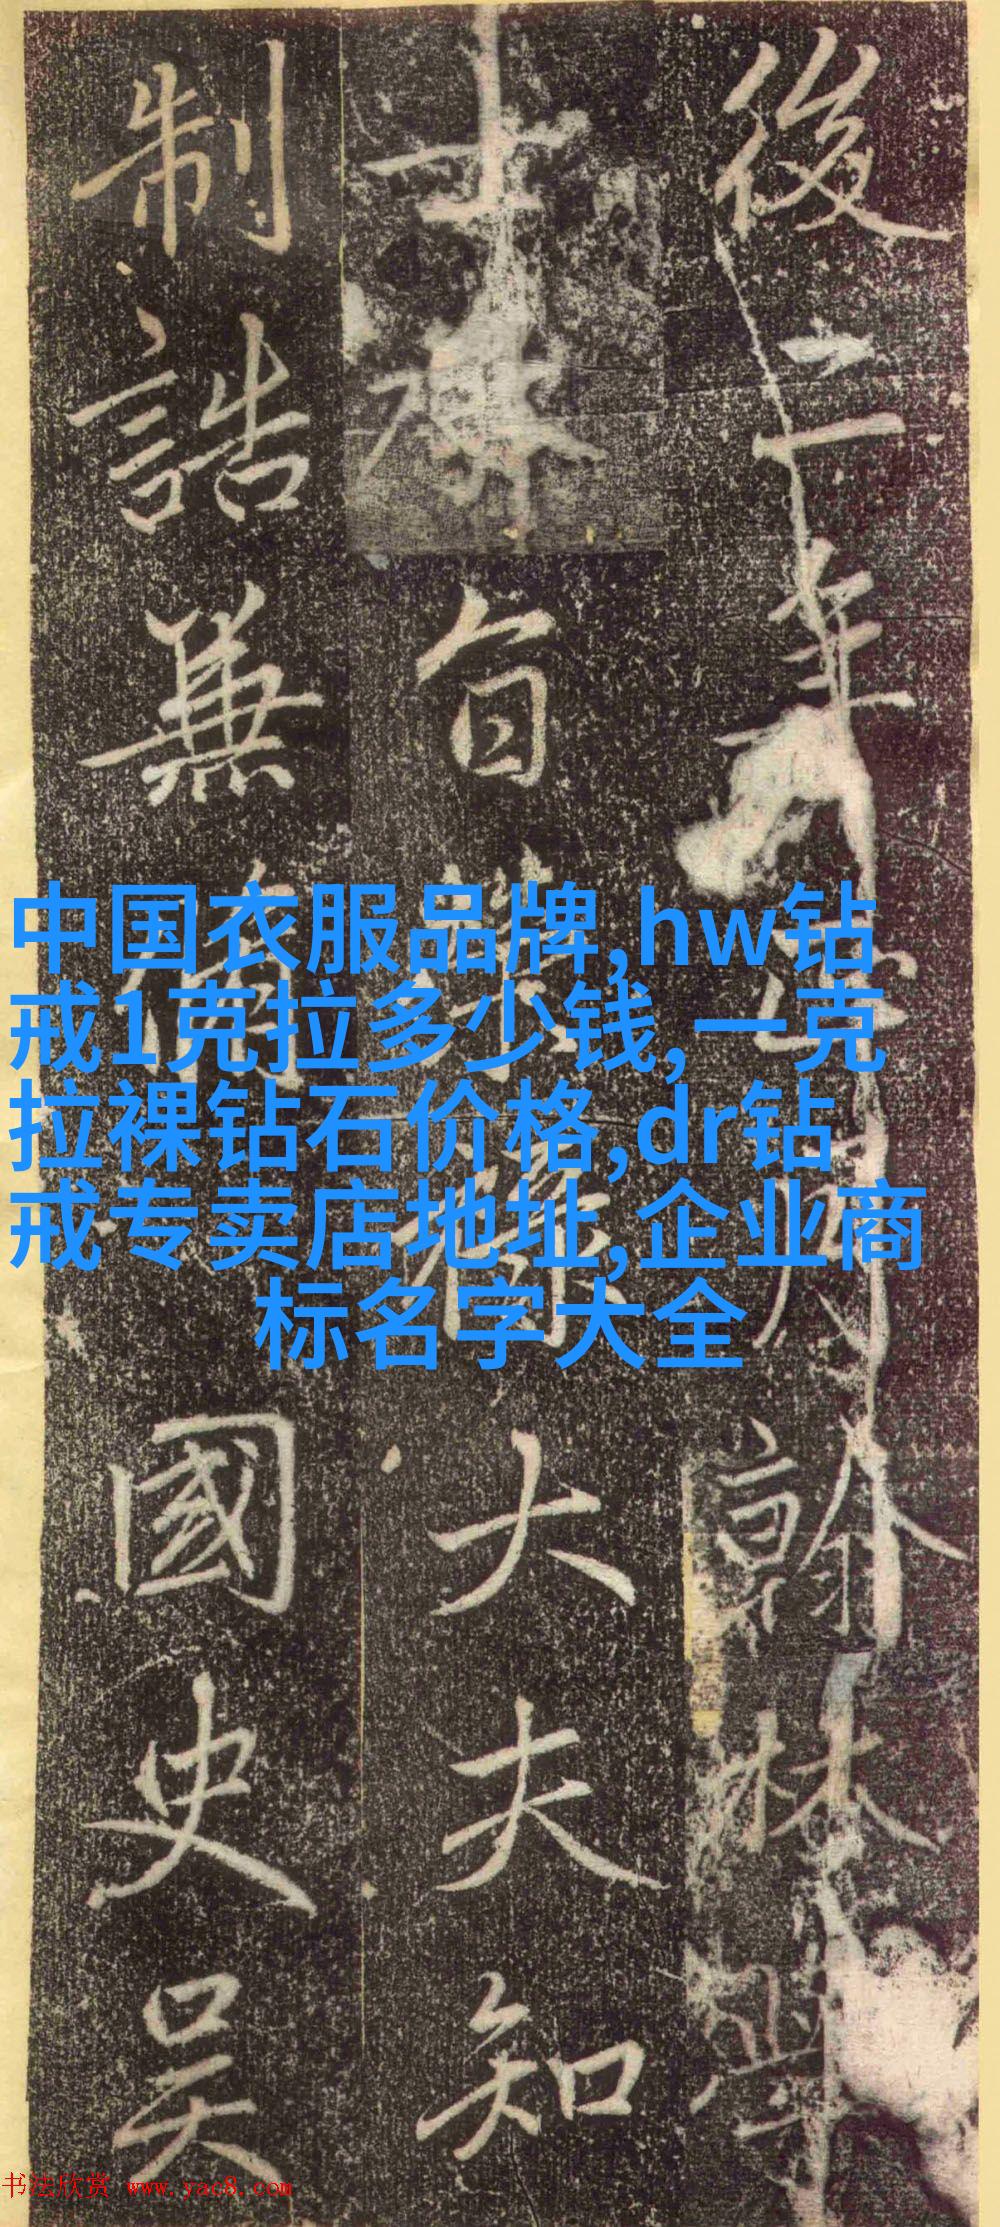 後二年正月翰林學
士奉旨榮祿大夫知
制誥兼修國史吴
中国衣服品牌,hw钻
戒1克拉多少钱,一克
拉裸钻石价格,dr钻
戒专卖店地址,企业商
标名字大全
书法欣赏 www.yac8.com